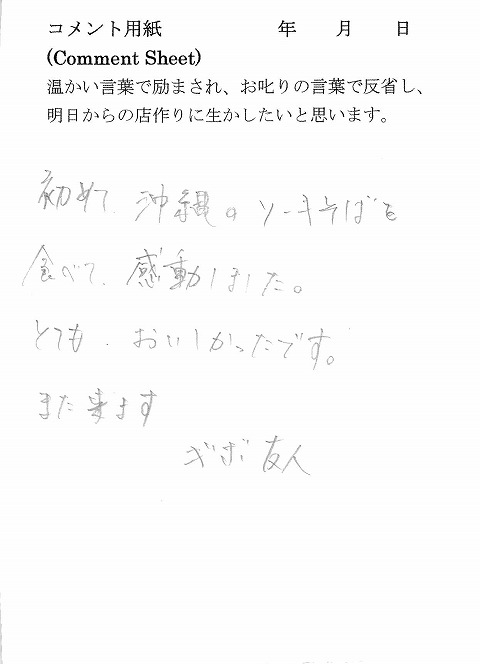 コメント用紙 年 月 日
(Comment Sheet)
温かい言葉で励まされ、お叱りの言葉で反省し、
明日からの店作りに生かしたいと思います。
初めて、沖縄のソーキそばを
食べて、感動しました。
とても、おいしかったです。
また来ます
ギボ 友人